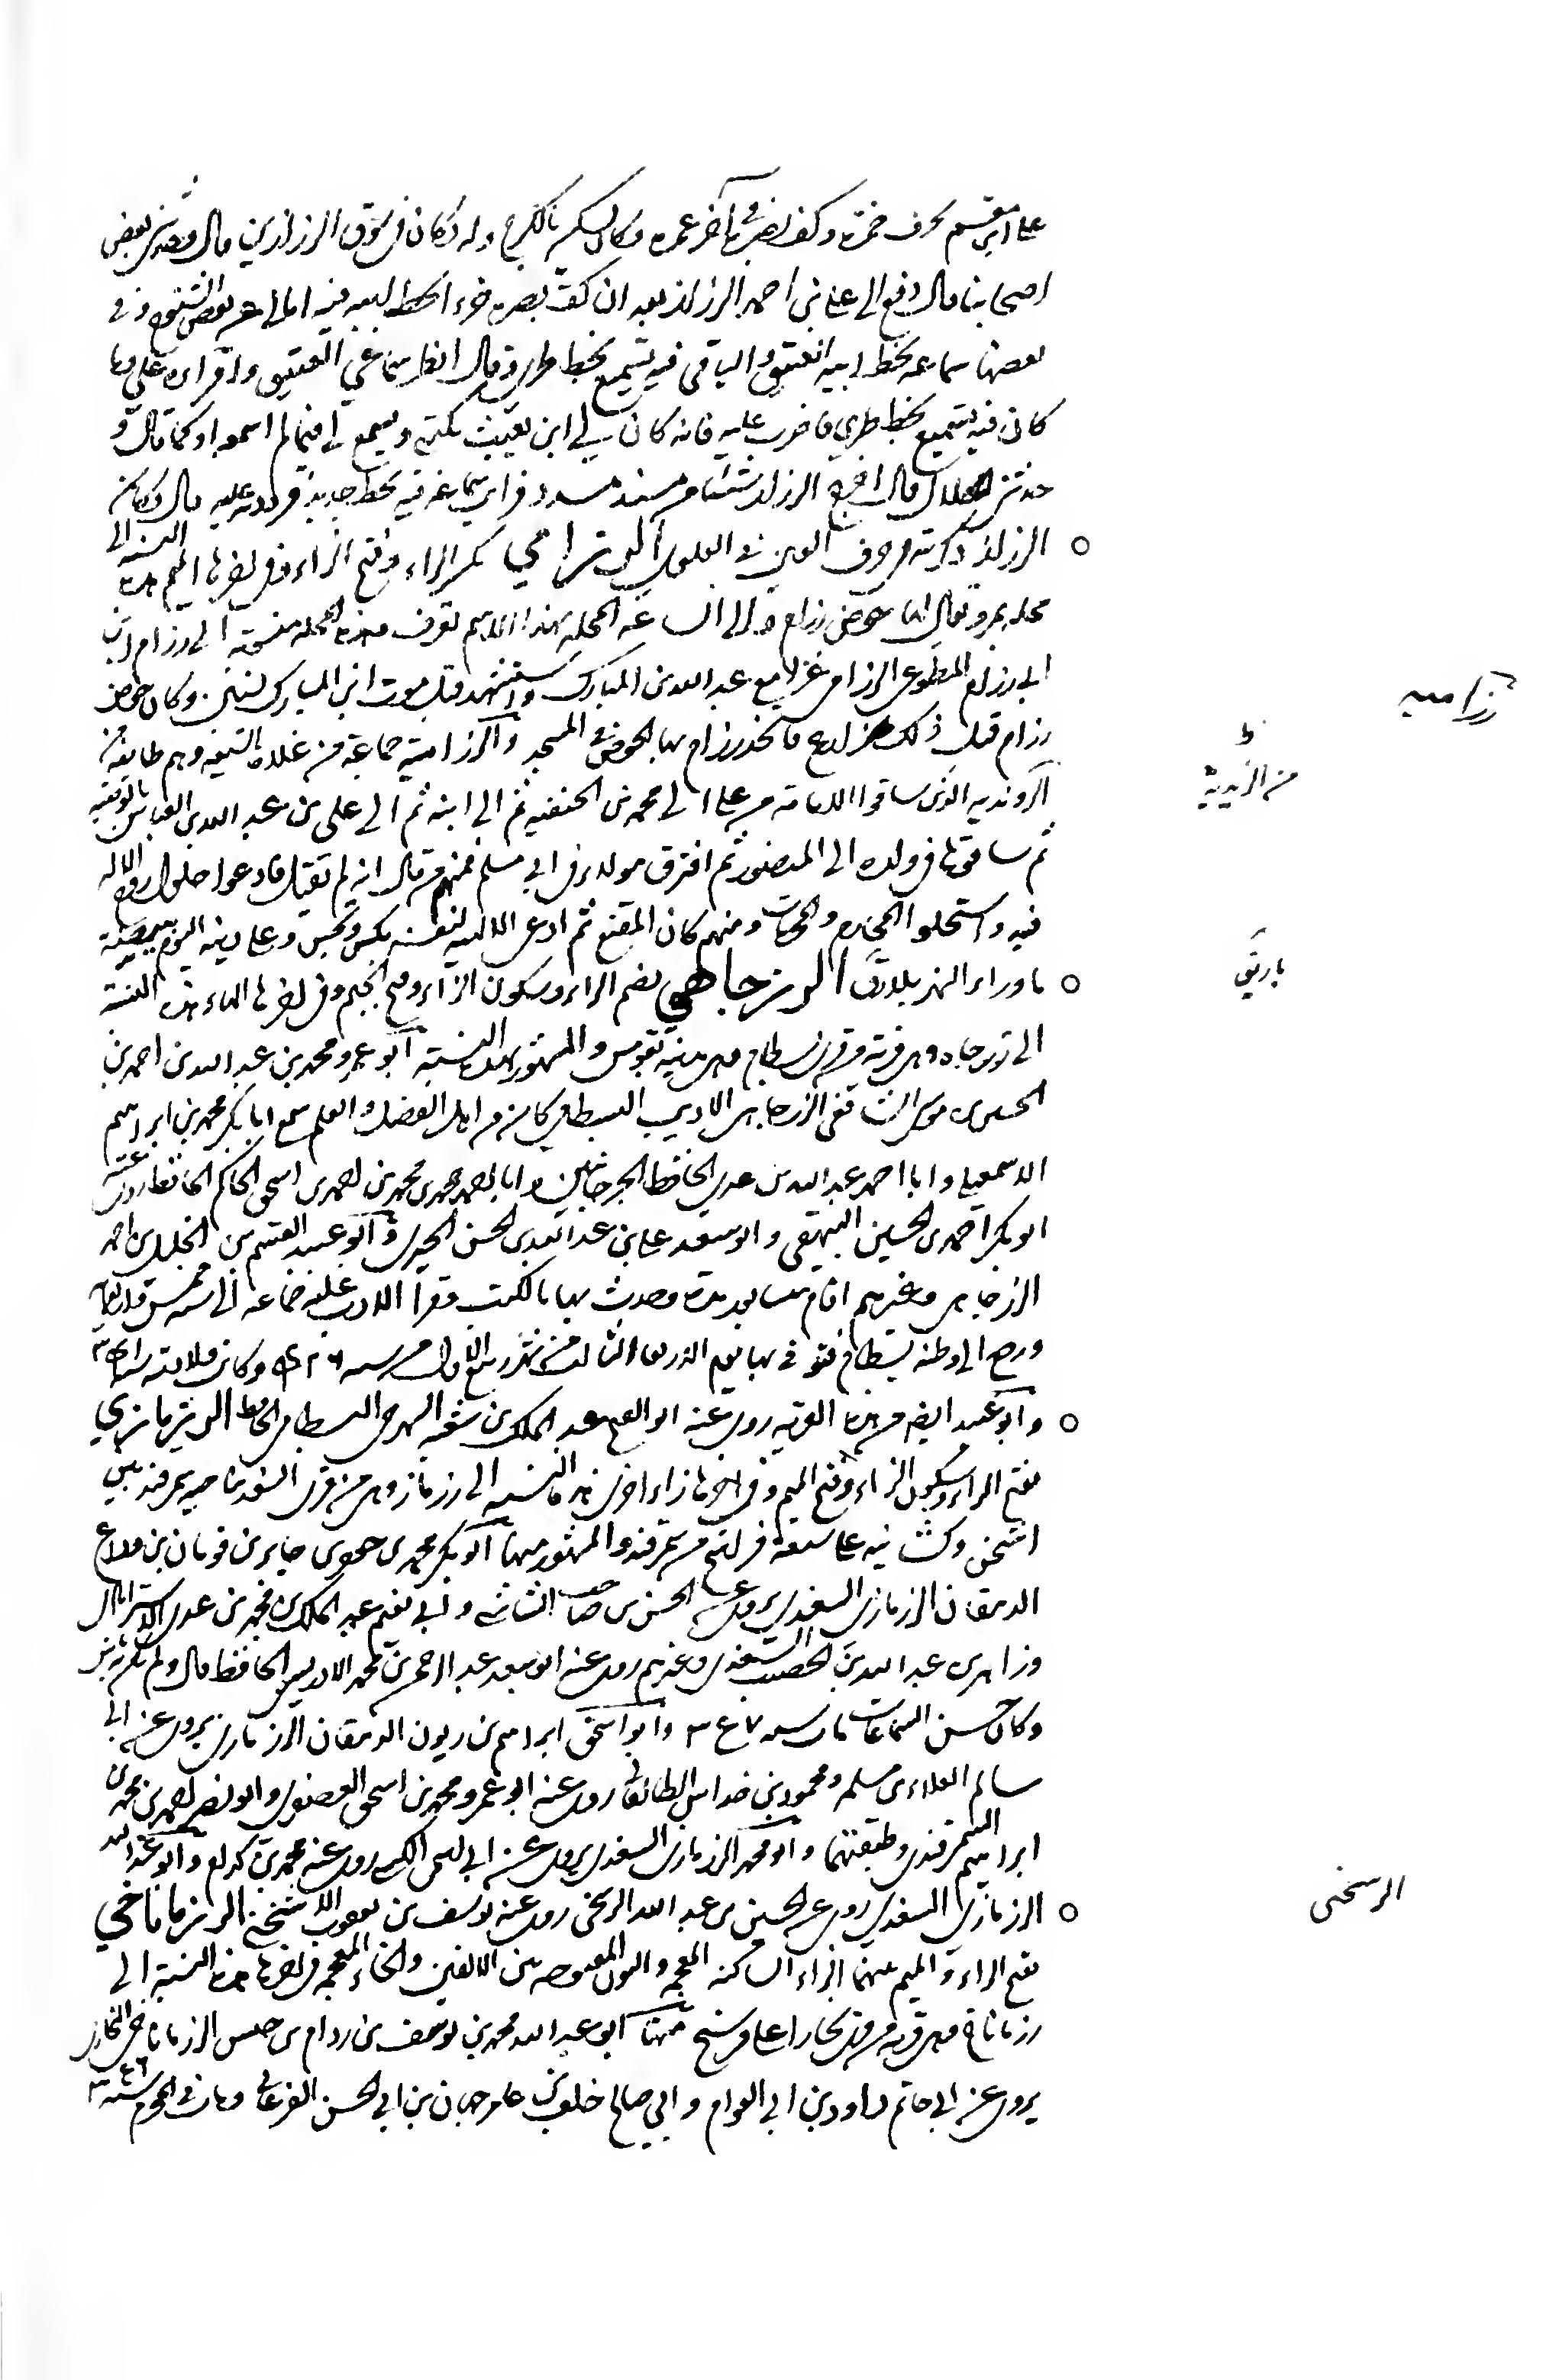 على ابن مقسم بحرف حمزة وكف بصره في آخر عمره وكان يسكن بالكرخ وله دكان في سوق الرزازين قال وحدثني بعض
اصحابنا قال دفع الي علي بن احمد الرزاز بعد ان كف بصره جزء بخط ابيه فيه امالي عن بعض الشيوخ وفي
بعضها سماعه بخط ابيه العتيق والباقي فيه تسميع بخط طري وقال انظر سماعي العتيق واقراه علي وما
كان فيه تسميع بخط طري فاضرب عليه فانه كان لي ابن يعبث بكتبي ويسمع لي فيما لم اسمع او كما قال و
حدثني الخلال قال اخرج الي الرزاز شيئا من مسند مسدد فراى سماعه فيه بخط جديد فرددته عليه قال وكان
الرزاز ذكرته في حرف العين في العلوي الرزامي بكسر الراء وفتح الزاء وفي اخرها الميم هذه النسبة الى
محلة بمرو يقال لها حوض رزام والى الساعة المحلة بهذا الاسم تعرف وهذه المحلة منسوبة الى رزام ابن
ابي رزام المطوعي الرزامي غزا مع عبد الله بن المبارك واستشهد قبل موت ابن المبارك بسنتين وكان حوض
رزام قبل ذلك فاتخذ رزام بها الحوض في المسجد والرزامية جماعة من غلاة الشيعة وهم طائفة من
الروندية الذين ساقوا الامامة من علي الى محمد بن الحنفية ثم الى ابنه ثم الى علي بن عبد الله بن العباس بالوصية
ثم ساقوها في ولده الى المنصور ثم افترق هولاء في ابي مسلم فمنهم من قال انه لم يقتل وادعوا حلول روح الاله
فيه واستحلوا المحارم والمحرمات ومنهم كان المقنع ثم ادعى الالهية لنفسه بكس ونخشب وعلى دينه اليوم مبيضة
ما وراء النهر بايلاق الرزجاهي بضم الراء وسكون الزاء وفتح الجيم وفي اخرها الهاء هذه النسبة
الى رزجاه وهي قرية من قرى بسطام وهي مدينة بقومس والمشهور بهذه النسبة ابو عمرو محمد بن عبد الله بن احمد بن
الحسين بن موسى الشافعي الرزجاهي الاديب البسطامي كان من اهل الفضل والعلم سمع ابا بكر محمد بن ابراهيم
الاسمعيلي وابا احمد عبد الله بن عدي الحافظ الجرجانيين وابا احمد محمد بن محمد بن احمد بن اسحق الحاكم الحافظ روى عنه
ابو بكر احمد بن الحسين البيهقي وابو سعد علي بن عبد الله بن الحسن الحيري وابو عبيد القسم بن الخليل بن احمد
الرزجاهي وغيرهم اقام بنيسابور مدة وحدث بها بالكتب وقرأ الادب عليه جماعة الى سنة خمس واربعمائة
ورجع الى وطنه بسطام فتوفي بها يوم الاربعاء الثالث من شهر ربيع الاول من سنة ٤٢٦ وكان ولادته سنة ٣٤١
وابو عبيد ايضا من هذه القرية روى عنه ابو الفتح عبد الملك بن شعبة السهرجي البسطامي الحافظ الرزمازي
بفتح الراء وسكون الزاء وفتح الميم وفي اخرها زاء اخرى هذه النسبة الى رزماز وهي من قرى السغد بناحية سمرقند بين
اشتيخن وكشانية على سبعة فراسخ من سمرقند والمشهور منها ابو بكر محمد بن جعفر بن جابر بن فرمان بن
الدهقان الرزمازي السغدي يروي عن الحسن بن صاحب الشاشي وابي نعيم عبد الملك بن محمد بن عدي الاستراباذي
وزاهر بن عبد الله بن الخصيب السغدي وغيرهم روى عنه ابو سعد عبد الرحمن بن محمد الادريسي الحافظ قال ولم يكن به باس
وكان حسن السماعات مات سنة ٣٤٧ وابو اسحق ابراهيم بن ريون الدهقان الرزمازي يروي عن ابي
سالم العلاء بن مسلمة ومحمود بن خداش الطالقاني روى عنه ابو عمرو محمد بن اسحق العصفري وابو نصر احمد بن محمد بن
ابراهيم السمرقندي وطبقتهما وابو محمد الرزمازي السغدي يروي عن ابي الحسن الكسي روى عنه محمد بن وابو عبد الله
الرزمازي السغدي روى عن الحسين بن عبد الله الربنجني روى عنه يوسف بن يعقوب الاشتيخني الرزماناخي
بفتح الراء والميم بينهما الزاء الساكنة المعجمة والنون المفتوحة بين الالفين والخاء المعجمة في اخرها هذه النسبة الى
رزماناخ وهي قرية من قرى بخارا على فرسخ منها ابو عبد الله محمد بن يوسف بن ردام بن حبيش الرزماناخي البخاري
يروي عن ابي حاتم داود بن ابي العوام وابي صالح خلف بن عامر وحبان بن ابي الحسن الفرغاني ومات في المحرم سنة ٣٤٦
رزاميه
ط
من الزيديه
بايلاق
الربنجني